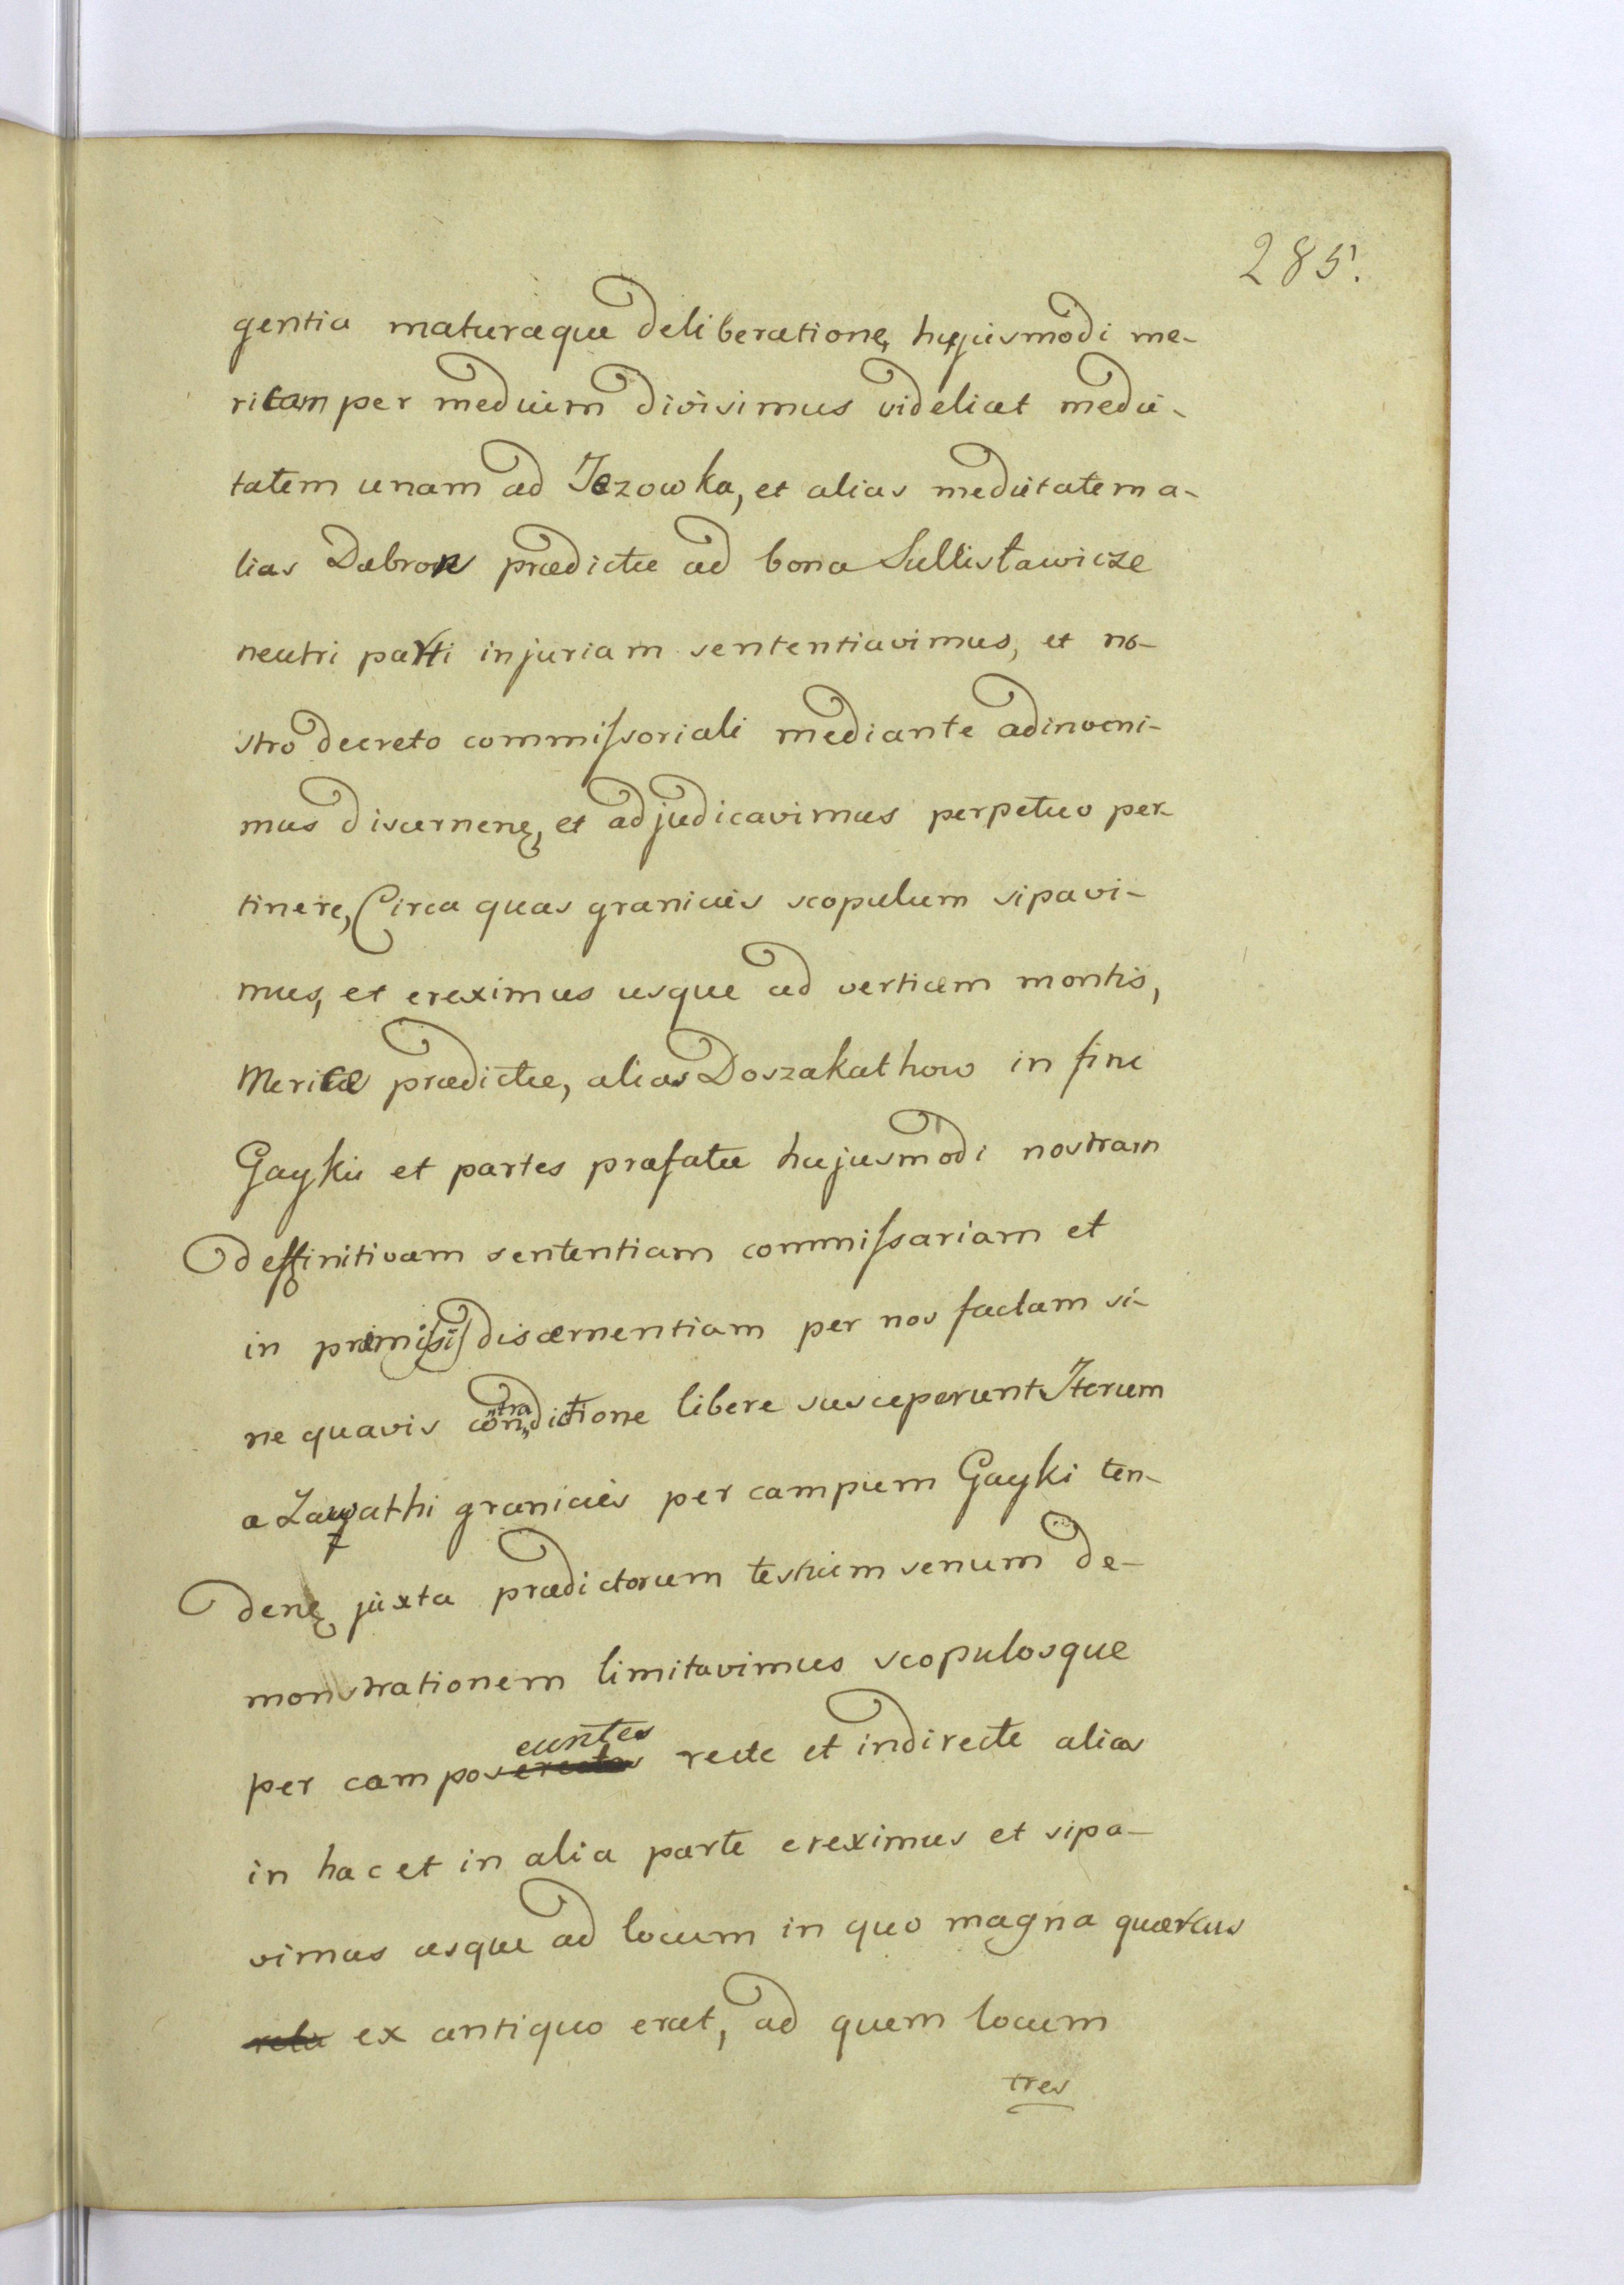 285.
gentia maturaque deliberatione, hujusmodi me-
ricam per medium divisimus videlicet medie-
tatem unam ad Jezowka, et alias medietatem a-
lias Dabrow prædictæ ad bona Sullisławicze
neutri parti injuriam sententiavimus, et no-
stro decreto commissoriali mediante adinveni-
mus discernenę, et adjudicavimus perpetuo per-
tinere, Circa quas granicies scopulum sipavi-
mus, et ereximus usque ad verticem montis,
Mericæ prædictæ, alias Doszakathow in fine
Gaykii et partes præfatæ hujusmodi nostram
deffinitivam sententiam commissariam et
in præmissis discernentiam per nos factam si-
ne quavis contradictione libere susceperunt Iterum
a granicies per campum Gayki ten-
denę juxta prædictorum testium senum de-
monstrationem limitavimus scopulosque
per campos euntes recte et indirecte alias
in hac et in alia parte ereximus et sipa-
vimus usque ad locum in quo magna quercus
ex antiquo erat, ad quem locum
tres